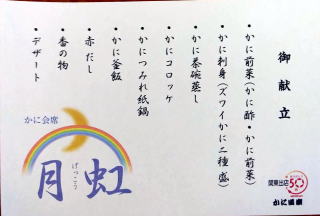 御献立
・かに前菜(かに酢・かに前菜)
・かに刺身(ズワイかに二種盛)
・かに茶碗蒸し
・かにコロッケ
・かにつみれ紙鍋
・かに釜飯
・赤だし
・香の物
・デザート
かに会席
げっこう
月虹
関東出店
50
かに道楽